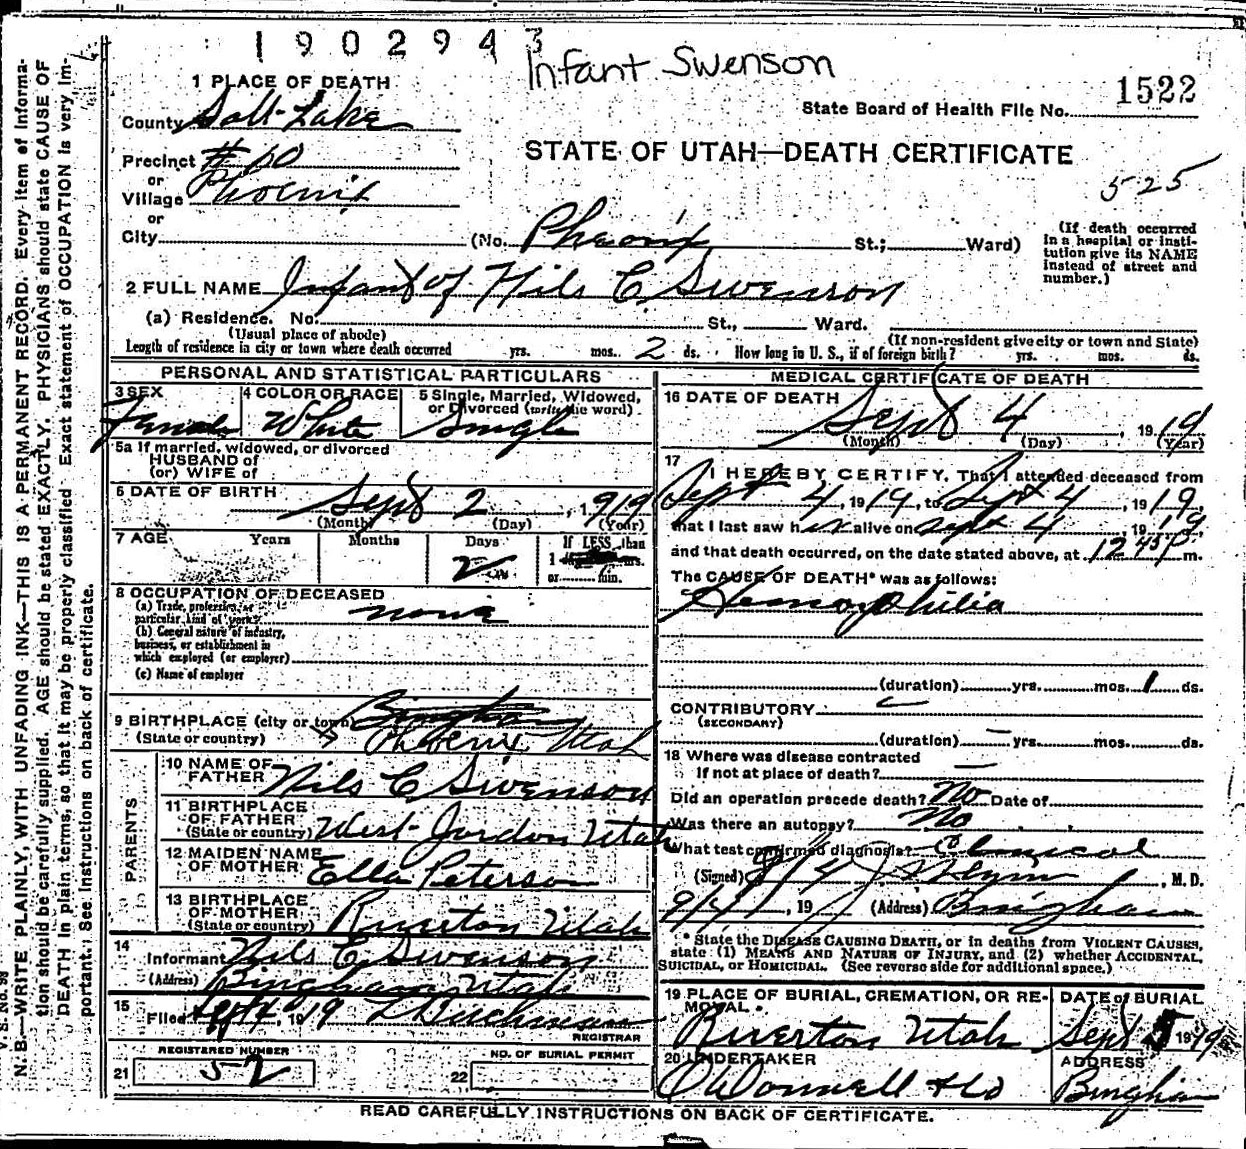 1902943
Infant Swenson
1 PLACE OF DEATH
County Salt Lake
State Board of Health File No. 1522
Precinct # 60
or
Village Phoenix
or
City
STATE OF UTAH—DEATH CERTIFICATE
525
(No. Pheonix St.; Ward)
(If death occurred
in a hospital or insti-
tution give its NAME
instead of street and
number.)
2 FULL NAME Infant of Nils C Swenson
(a) Residence. No. St., Ward.
(Usual place of abode) (If non-resident give city or town and State)
Length of residence in city or town where death occurred yrs. mos. 2 ds. How long in U. S., if of foreign birth? yrs. mos. ds.
PERSONAL AND STATISTICAL PARTICULARS
3 SEX Female
4 COLOR OR RACE White
5 Single, Married, Widowed,
or Divorced (write the word) Single
5a If married, widowed, or divorced
HUSBAND of
(or) WIFE of
6 DATE OF BIRTH Sept 2, 1919
(Month) (Day) (Year)
7 AGE Years Months Days If LESS than
2 1 hrs.
or min.
8 OCCUPATION OF DECEASED
(a) Trade, profession, or
particular kind of work none
(b) General nature of industry,
business, or establishment in
which employed (or employer)
(c) Name of employer
9 BIRTHPLACE (city or town) Bingham
(State or country) Phoenix Utah
PARENTS
10 NAME OF
FATHER Nils C Swenson
11 BIRTHPLACE
OF FATHER
(State or country) West Jordon Utah
12 MAIDEN NAME
OF MOTHER Ella Peterson
13 BIRTHPLACE
OF MOTHER
(State or country) Riverton Utah
14
Informant Nils C Swenson
(Address) Bingham Utah
15
Filed Sept 4, 1919
REGISTRAR
REGISTERED NUMBER
21 52
NO. OF BURIAL PERMIT
22
MEDICAL CERTIFICATE OF DEATH
16 DATE OF DEATH
Sept 4, 1919
(Month) (Day) (Year)
17
I HEREBY CERTIFY, That I attended deceased from
Sept 4, 1919, to Sept 4, 1919,
that I last saw her alive on Sept 4, 1919,
and that death occurred, on the date stated above, at 1245 P m.
The CAUSE OF DEATH* was as follows:
Hemophilia
(duration) yrs. mos. 1 ds.
CONTRIBUTORY
(SECONDARY)
(duration) yrs. mos. ds.
18 Where was disease contracted
if not at place of death?
Did an operation precede death? No Date of
Was there an autopsy? No
What test confirmed diagnosis? Clinical
(Signed) , M. D.
9/4, 19 (Address) Bingham
* State the DISEASE CAUSING DEATH, or in deaths from VIOLENT CAUSES,
state (1) MEANS AND NATURE OF INJURY, and (2) whether ACCIDENTAL,
SUICIDAL, or HOMICIDAL. (See reverse side for additional space.)
19 PLACE OF BURIAL, CREMATION, OR RE-
MOVAL
Riverton Utah
DATE of BURIAL
Sept 5 1919
20 UNDERTAKER
O'Donnell & Co
ADDRESS
Bingham
READ CAREFULLY INSTRUCTIONS ON BACK OF CERTIFICATE.
V. S. No. 98
N. B.—WRITE PLAINLY, WITH UNFADING INK—THIS IS A PERMANENT RECORD. Every item of informa-
tion should be carefully supplied. AGE should be stated EXACTLY. PHYSICIANS should state CAUSE OF
DEATH in plain terms, so that it may be properly classified. Exact statement of OCCUPATION is very im-
portant. See instructions on back of certificate.